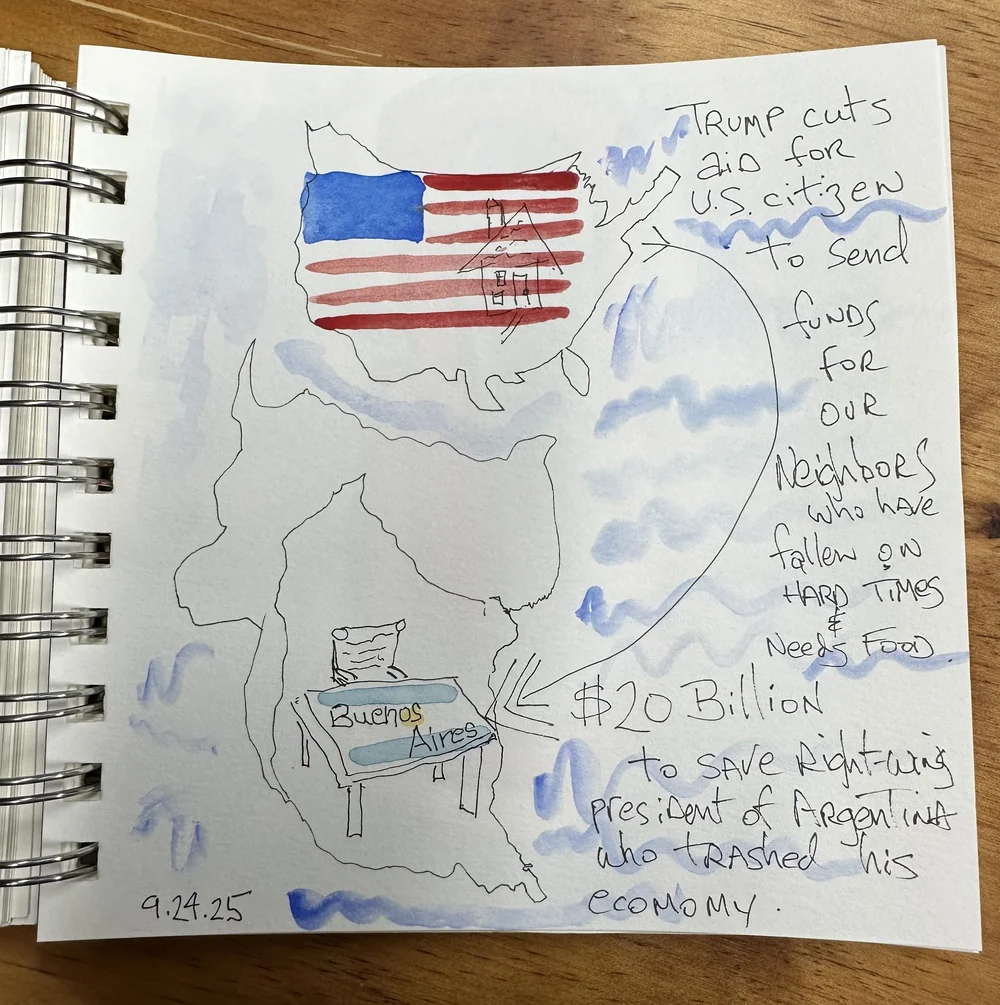 TRUMP cuts
aid for
U.S. citizen
to send
funds
for
our
Neighbors
who have
fallen on
HARD TIMES
&
Needs Food
$20 Billion
to save Right-wing
president of Argentina
who trashed his
economy.
Buenos
Aires
9.24.25